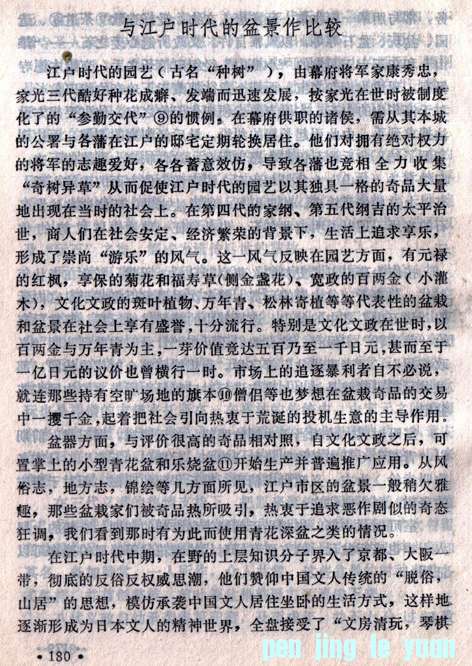 与江户时代的盆景作比较
江户时代的园艺（古名“种树”），由幕府将军家康秀忠，
家光三代酷好种花成癖、发端而迅速发展，按家光在世时被制度
化了的“参勤交代”⑨的惯例。在幕府供职的诸侯，需从其本城
的公署与各藩在江户的邸宅定期轮换居住。他们对拥有绝对权力
的将军的志趣爱好，各各蓄意效仿，导致各藩也竞相全力收集
“奇树异草”从而促使江户时代的园艺以其独具一格的奇品大量
地出现在当时的社会上。在第四代的家纲、第五代纲吉的太平治
世，商人们在社会安定、经济繁荣的背景下，生活上追求享乐，
形成了崇尚“游乐”的风气。这一风气反映在园艺方面，有元禄
的红枫，享保的菊花和福寿草(侧金盏花)、宽政的百两金（小灌
木），文化文政的斑叶植物、万年青、松林寄植等等代表性的盆栽
和盆景在社会上享有盛誉，十分流行。特别是文化文政在世时，以
百两金与万年青为主，一芽价值竞达五百乃至一千日元，甚而至于
一亿日元的议价也曾横行一时。市场上的追逐暴利者自不必说，
就连那些持有空旷场地的旗本⑩僧侣等也梦想在盆栽奇品的交易
中一攫千金，起着把社会引向热衷于荒诞的投机生意的主导作用。
盆器方面，与评价很高的奇品相对照，自文化文政之后，可
置掌上的小型青花盆和乐烧盆⑪开始生产并普遍推广应用。从风
俗志，地方志，锦绘等几方面所见，江户市区的盆景一般稍欠雅
趣，那些盆栽家们被奇品热所吸引，热衷于追求恶作剧似的奇态
狂调，我们看到那时有为此而使用青花深盆之类的情况。
在江户时代中期，在野的上层知识分子界入了京都、大阪一
带，彻底的反俗反权威思潮，他们赞仰中国文人传统的“脱俗，
山居”的思想，模仿承袭中国文人居住坐卧的生活方式，这样地
逐渐形成为日本文人的精神世界，全盘接受了“文房清玩，琴棋
· 180 ·
pen jing le yuan